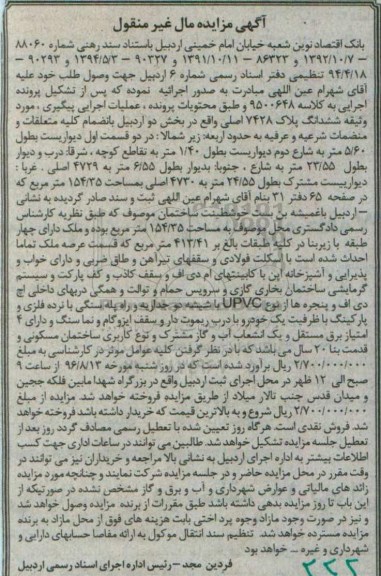 آگهی مزایده مال غیر منقول
بانک اقتصاد نوین شعبه خیابان امام خمینی اردبیل باستناد سند رهنی شماره ۸۸۰۶۰
– ۱۳۹۲/۱۰/۷ و ۸۶۳۲۳ – ۱۳۹۱/۱۰/۱۱ و ۹۰۳۳۷ – ۱۳۹۴/۵/۳ و ۹۰۲۹۳ –
۹۴/۴/۱۸ تنظیمی دفتر اسناد رسمی شماره ۶ اردبیل جهت وصول طلب خود علیه
آقای شهرام عین اللهی مبادرت به صدور اجرائیه نموده که پس از تشکیل پرونده
اجرایی به کلاسه ۹۵۰۰۶۴۸ و طبق محتویات پرونده ، عملیات اجرایی پیگیری ، مورد
وثیقه ششدانگ پلاک ۷۴۲۸ اصلی واقع در بخش دو اردبیل بانضمام کلیه متعلقات و
منضمات شرعیه و عرفیه به حدود اربعه زیر شمالا : در دو قسمت اول دیواریست بطول
۵/۶۰ متر به شارع دوم دیواریست بطول ۱/۴۰ متر به تقاطع کوچه ، شرقا: درب و دیوار
بطول ۲۳/۵۵ متر به شارع ، جنوبا: بدیوار بطول ۶/۵۵ متر به ۴۷۲۹ اصلی ، غربا :
دیواریست مشترک بطول ۲۴/۵۵ متر به ۴۷۳۰ اصلی بمساحت ۱۵۴/۳۵ متر مربع که
در صفحه ۶۵ دفتر ۳۱ بنام آقای شهرام عین اللهی ثبت و سند صادر گردیده به نشانی
– اردبیل باغمیشه بن بست موقعیت ساختمان موصوف که طبق نظریه کارشناس
رسمی دادگستری محل موصوف به مساحت ۱۵۴/۳۵ متر مربع بوده و ملک دارای چهار
طبقه با زیربنا در کلیه طبقات بالغ بر ۴۱۳/۴۱ متر مربع که قسمت عرصه ملک تماما
احداث شده است با اسکلت فولادی و سقفهای تیرآهن و طاق ضربی و دارای خواب و
پذیرایی و آشپزخانه اپن با کابینتهای ام دی اف و سقف کاذب و کف پارکت و سیستم
گرمایشی ساختمان بخاری گازی و سرویس حمام و توالت و همگی دربهای داخلی اچ
دی اف و پنجره ها از نوع UPVC با شیشه دو جداره و راه پله سنگی با نرده فلزی و
پارکینگ با ظرفیت یک خودرو با درب ریموت دار و سقف ایزوگام و نما سنگ و دارای ۴
امتیاز برق مستقل و یک انشعاب آب و گاز مشترک و نوع کاربری ساختمان مسکونی و
قدمت بنا ۲۰ سال می باشد که با در نظر گرفتن کلیه عوامل موثر در کارشناسی به مبلغ
۲/۷۰۰/۰۰۰/۰۰۰ ریال برآورد شده است که در روز شنبه مورخه ۹۶/۸/۱۳ از ساعت ۹
صبح الی ۱۲ ظهر در محل اجرای ثبت اردبیل واقع در بزرگراه شهدا مابین فلکه ججین
و میدان قدس جنب تالار میلاد از طریق مزایده فروخته خواهد شد. مزایده از مبلغ
۲/۷۰۰/۰۰۰/۰۰۰ ریال شروع و به بالاترین قیمت که خریدار داشته باشد فروخته خواهد
شد. فروش نقدی است. هرگاه روز تعیین شده با تعطیل رسمی مصادف گردد روز بعد از
تعطیل جلسه مزایده تشکیل خواهد شد. طالبین می توانند در ساعات اداری جهت کسب
اطلاعات بیشتر به اداره اجرای اردبیل به نشانی بالا مراجعه و خریداران نیز می توانند در
وقت مقرر در محل مزایده حاضر و در جلسه مزایده شرکت نمایند و چنانچه مورد مزایده
رائد های مالیاتی و عوارض شهرداری و آب و برق و گاز مشخص نشده در صورتیکه از
این باب تا روز مزایده بدهی داشته باشد طبق مقررات از برنده مزایده وصول خواهد شد
و نیز در صورت وجود مازاد وجوه پرداختی بابت هزینه های فوق از محل مازاد به برنده
مزایده مسترد خواهد شد. تنظیم سند انتقال موکول به ارائه مفاصا حسابهای دارایی و
شهرداری و غیره ... خواهد بود
فردین مجد – رئیس اداره اجرای اسناد رسمی اردبیل
۲۲۲